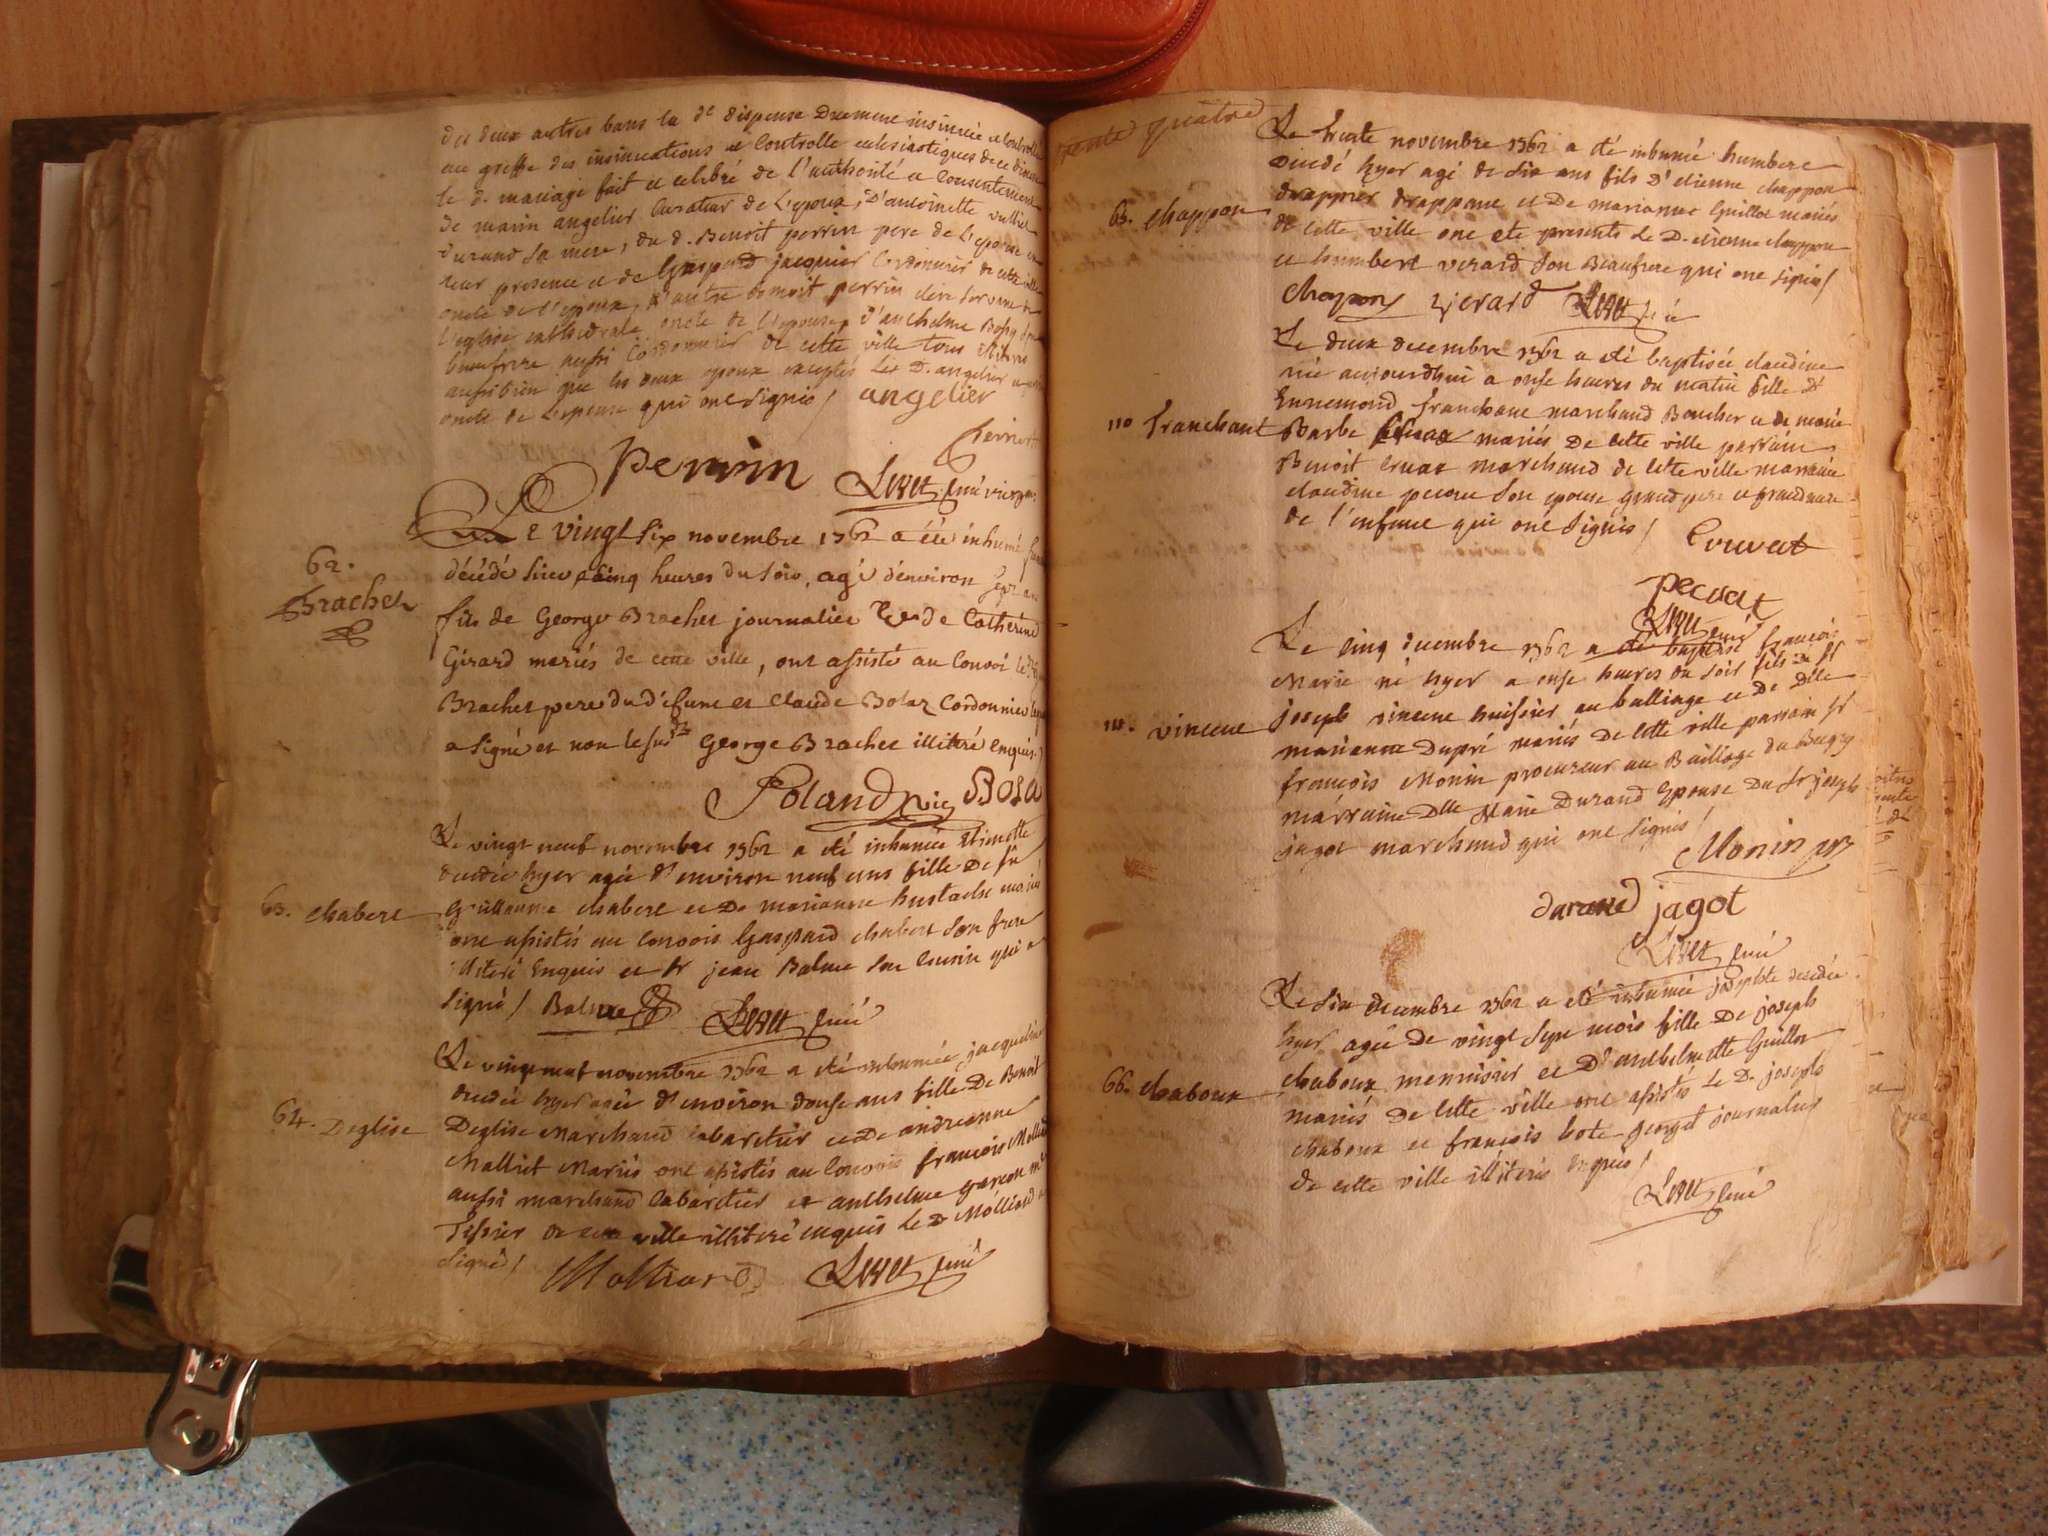 des deux autres bans la de dispense Duement insinuée et Controllé
au greffe des insinuations et Controlle eclesiastiques de ce
le d. mariage fait et celebré de l'authorité et Consentement
de marin angelier Curateur de L'epoux, D'antoinette
durand sa mere, du d. Benoit perrin pere de L'epouse
leur presence et de Gaspard jacquier Cordonnier de cette ville
oncle de l'epoux, d'autre benoit perrin clerc
l'eglise cathedrale oncle de l'epouse, d'anthelme Bossy
beaufrere aussi Cordonnier de cette ville tous
aussi bien que les deux epoux exceptés Les D. angelier
oncle de L'epouse qui ont signés / angelier
perrin
Perrin Livet curé
Le vingt six novembre 1762 a été inhumé
62.
Brachet
décédé hier a cinq heures du soir, agé d'environ sept ans
fils de George Brachet journalier et de Catherine
Girard mariés de cette ville, ont assisté au Convoi le
Brachet pere du défunt et Claude Bolaz Cordonnier
a signé et non le susdt George Brachet illitéré enquis
Poland vic Bola
Le vingt neuf novembre 1762 a été inhumée
decedée hyer agée d'environ neuf ans fille De fû
63. chabert
Guillaume chabert et De marianne hustache mariés
ont assistés au Convois Gaspard chabert son frere
illiteré Enquis et Sr jean Balme son Cousin qui a
signé / Balme Livet curé
Le vingt neuf novembre 1762 a été inhumée jacqueline
decedée hyer agée d'environ douse ans fille De Benoit
64. Deglise
Deglise Marchand cabaretier et De andreanne
Molliet Mariés ont assistés au Convois françois
aussi marchand cabaretier et anthelme garçon
Tissier de cette ville illiteré enquis le d. Molliard a
signé / Molliard Livet curé
trente quatre
Le trente novembre 1762 a été inhumé humbert
decedé hyer agé de six ans fils D'etienne chappon
65. chappon
drappier drappant et De marianne Guillot mariés
de cette ville ont eté presents le D. etienne chappon
et humbert verard son Beaufrere qui ont signés /
chapon verard Livet curé
Le deux decembre 1762 a été baptisée claudine
née aujourdhui a onse heures du matin fille d'
Ennemond franchant marchand Boucher et de marie
110 franchant
Barbe mariés De cette ville parrain
Benoit Cruat marchand de cette ville marraine
claudine pecout son epouse grand pere et grandmere
de l'enfant qui ont signés / Couvat
Pecout
Livet curé
Le cinq decembre 1762 a été baptisé françois
Marie né hyer a onse heures du soir fils de Sr
111. vincent
joseph vincent huissier au balliage et De Dlle
marianne Dupré mariés De cette ville parrain Sr
françois Monin procureur au Bailliage du Bugey
marraine Dlle Marie Durand Epouse Du Sr joseph
jagot marchand qui ont signés /
Monin
durand jagot
Livet curé
Le six decembre 1762 a été inhumée josephte decedée
hyer agée De vingt sept mois fille De joseph
66. chaboux
chaboux menuisier et D'anthelmette Guillot
mariés De cette ville ont assistés le D. joseph
chaboux et françois bote georget journalier
de cette ville illiterés enquis /
Livet curé